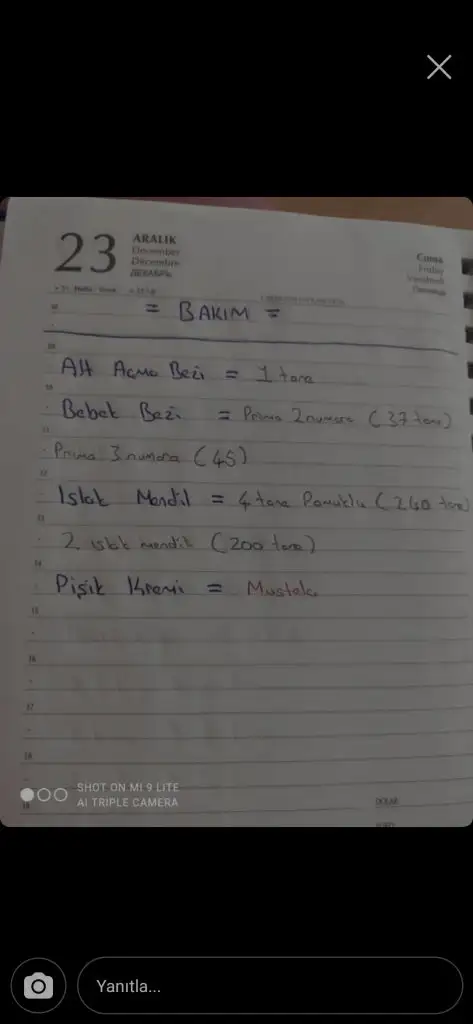 23
ARALIK
December
Décembre
ДЕКАБРЬ
Cuma
Friday
= BAKIM =
Alt Açma Bezi = 1 tane
Bebek Bezi = Prima 2 numara (37 tane)
Prima 3 numara (45)
Islak Mendil = 4 tane Pamuklu (240 tane)
2 ıslak mendil (200 tane)
Pişik Kremi = Mustela
10
11
12
13
14
15
16
17
18
SHOT ON MI 9 LITE
AI TRIPLE CAMERA
DOLAR
Yanıtla...